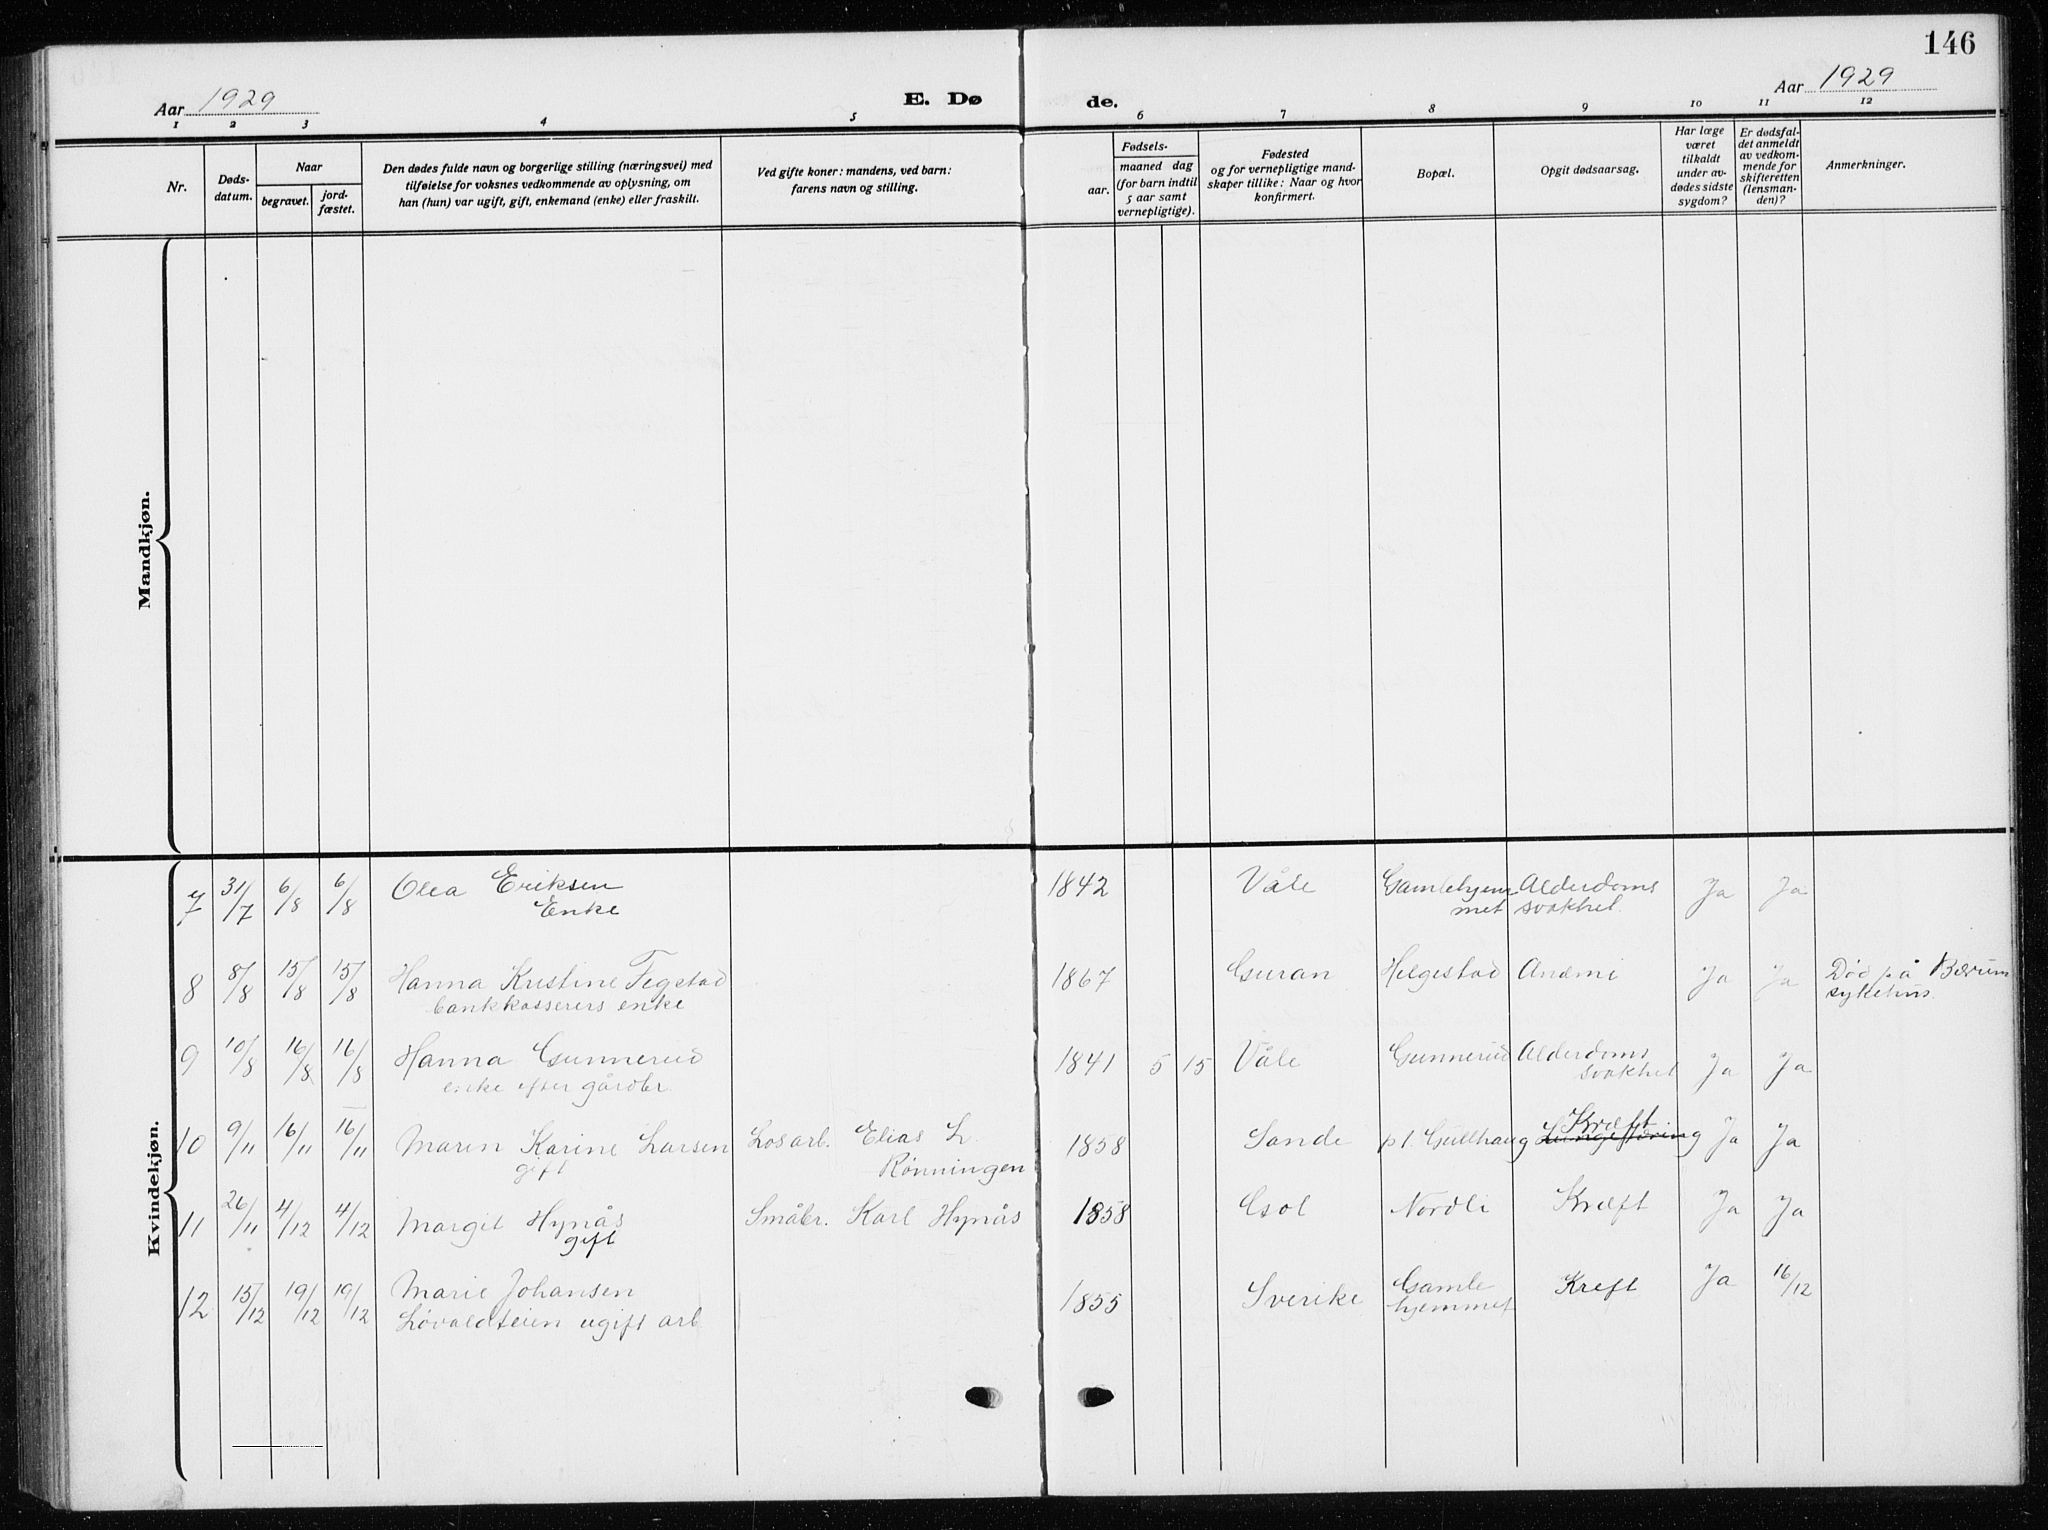 146
Aar 1929
E. Dø
de.
Aar 1929
1 2 3 4 5 6 7 8 9 10 11 12
Nr.
Døds-
datum.
Naar
begravet.
jord-
fæstet.
Den dødes fulde navn og borgerlige stilling (næringsvei) med
tilføielse for voksnes vedkommende av oplysning, om
han (hun) var ugift, gift, enkemand (enke) eller fraskilt.
Ved gifte koner: mandens, ved barn:
farens navn og stilling.
Fødsels-
aar.
maaned dag
(for barn indtil
5 aar samt
vernepligtige).
Fødested
og for vernepligtige mand-
skaper tillike: Naar og hvor
konfirmert.
Bopæl.
Opgit dødsaarsag.
Har læge
været
tilkaldt
under av-
dødes sidste
sygdom?
Er dødsfal-
det anmeldt
av vedkom-
mende for
skifteretten
(lensman-
den)?
Anmerkninger.
Mandkjøn.
Kvindekjøn.
7 31/7 6/8 6/8 Olea Eriksen 1842 Våle Gamlehjem Alderdoms Ja Ja
Enke met svakhet.
8 8/8 15/8 15/8 Hanna Kristine Fegstad 1867 Guran Helgestad Anæmi Ja Ja Død på Bærum
bankkasserers enke sykehus.
9 10/8 16/8 16/8 Hanna Gunnerud 1841 5 15 Våle Gunnerud Alderdoms Ja Ja
enke efter gårdbr. svakhet
Kræft
10 9/11 16/11 16/11 Maren Karine Larsen Losarb. Elias L. 1858 Sande pt. Gullhaug Ja Ja
gift Rønningen
11 26/11 4/12 4/12 Margit Hynås Småbr. Karl Hynås 1858 Gol Nordli Kræft Ja Ja
gift
12 15/12 19/12 19/12 Marie Johansen 1855 Sverike Gamle Kreft Ja 16/12
Løvaldteien ugift arb hjemmet